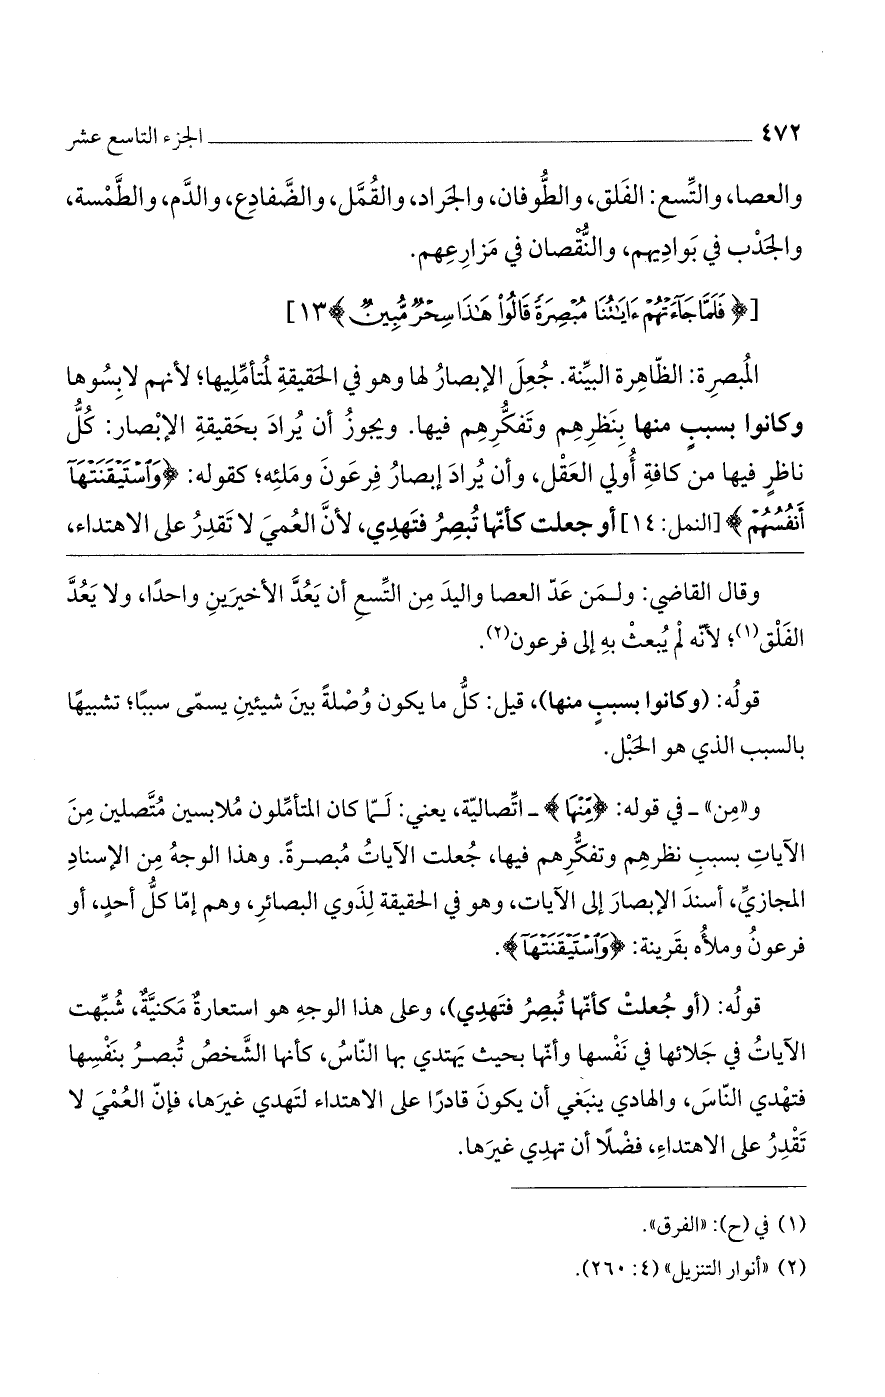 ٤٧٢ ــــــــــــــــــــــــــــــــــــــــ الجزء التاسع عشر
والعصا، والتِّسع: الفَلق، والطُّوفان، والجَراد، والقُمَّل، والضَّفادِع، والدَّم، والطَّمْسة،
والجَدْب في بَوادِيهم، والنُّقْصان في مَزارِعِهم.
[﴿فَلَمَّا جَآءَتْهُمْ ءَايَٰتُنَا مُبْصِرَةً قَالُوا۟ هَٰذَا سِحْرٌ مُّبِينٌ﴾ ١٣]
المُبصِرة: الظّاهِرة البيِّنة. جُعِلَ الإبصارُ لها وهو في الحَقيقةِ لمُتأمِّلِيها؛ لأنهم لابِسُوها
وكانوا بسببٍ منها بِنَظرِهِم وتَفكُّرِهِم فيها. ويجوزُ أن يُرادَ بحَقيقةِ الإبْصار: كُلُّ
ناظرٍ فيها من كافةِ أُولي العَقْل، وأن يُرادَ إبصارُ فِرعَونَ ومَلئِه؛ كقوله: ﴿وَٱسْتَيْقَنَتْهَآ
أَنفُسُهُمْ﴾ [النمل: ١٤] أو جعلت كأنّها تُبصِرُ فتَهدِي، لأنَّ العُميَ لا تَقدِرُ على الاهتداء،
وقال القاضي: ولـمَن عَدّ العصا واليدَ مِن التِّسعِ أن يَعُدَّ الأخيرَينِ واحدًا، ولا يَعُدَّ
الفَلْق(١)؛ لأنّه لْم يُبعثْ بهِ إلى فرعون(٢).
قولُه: (وكانوا بسببٍ منها)، قيل: كلُّ ما يكون وُصْلةً بينَ شيئينِ يسمّى سببًا؛ تشبيهًا
بالسبب الذي هو الحَبْل.
و«مِن» ـ في قوله: ﴿مِّنْهَا﴾ ـ اتِّصاليّة، يعني: لَـمّا كان المتأمِّلون مُلابسين مُتَّصلين مِنَ
الآياتِ بسببِ نظرِهِم وتفكُّرِهم فيها، جُعلت الآياتُ مُبصـرةً. وهذا الوجهُ مِن الإسنادِ
المجازيِّ، أسندَ الإبصارَ إلى الآيات، وهو في الحقيقة لِذَوي البصائرِ، وهم إمّا كلُّ أحدٍ، أو
فرعونُ وملأُه بقَرينة: ﴿وَٱسْتَيْقَنَتْهَآ﴾.
قولُه: (أو جُعلتْ كأنّها تُبصِرُ فتَهدِي)، وعلى هذا الوجهِ هو استعارةٌ مَكنيَّةٌ، شُبِّهت
الآياتُ في جَلائها في نَفْسها وأنّها بحيث يَهتدي بها النّاسُ، كأنها الشَّخصُ تُبصـرُ بنَفْسِها
فتهْدي النّاسَ، والهادي ينبَغي أن يكونَ قادرًا على الاهتداء لتَهدي غيرَها، فإنّ العُمْيَ لا
تَقْدِرُ على الاهتداءِ، فضْلًا أن تهدِي غيرَها.
(١) في (ح): «الفرق».
(٢) «أنوار التنزيل» (٤: ٢٦٠).